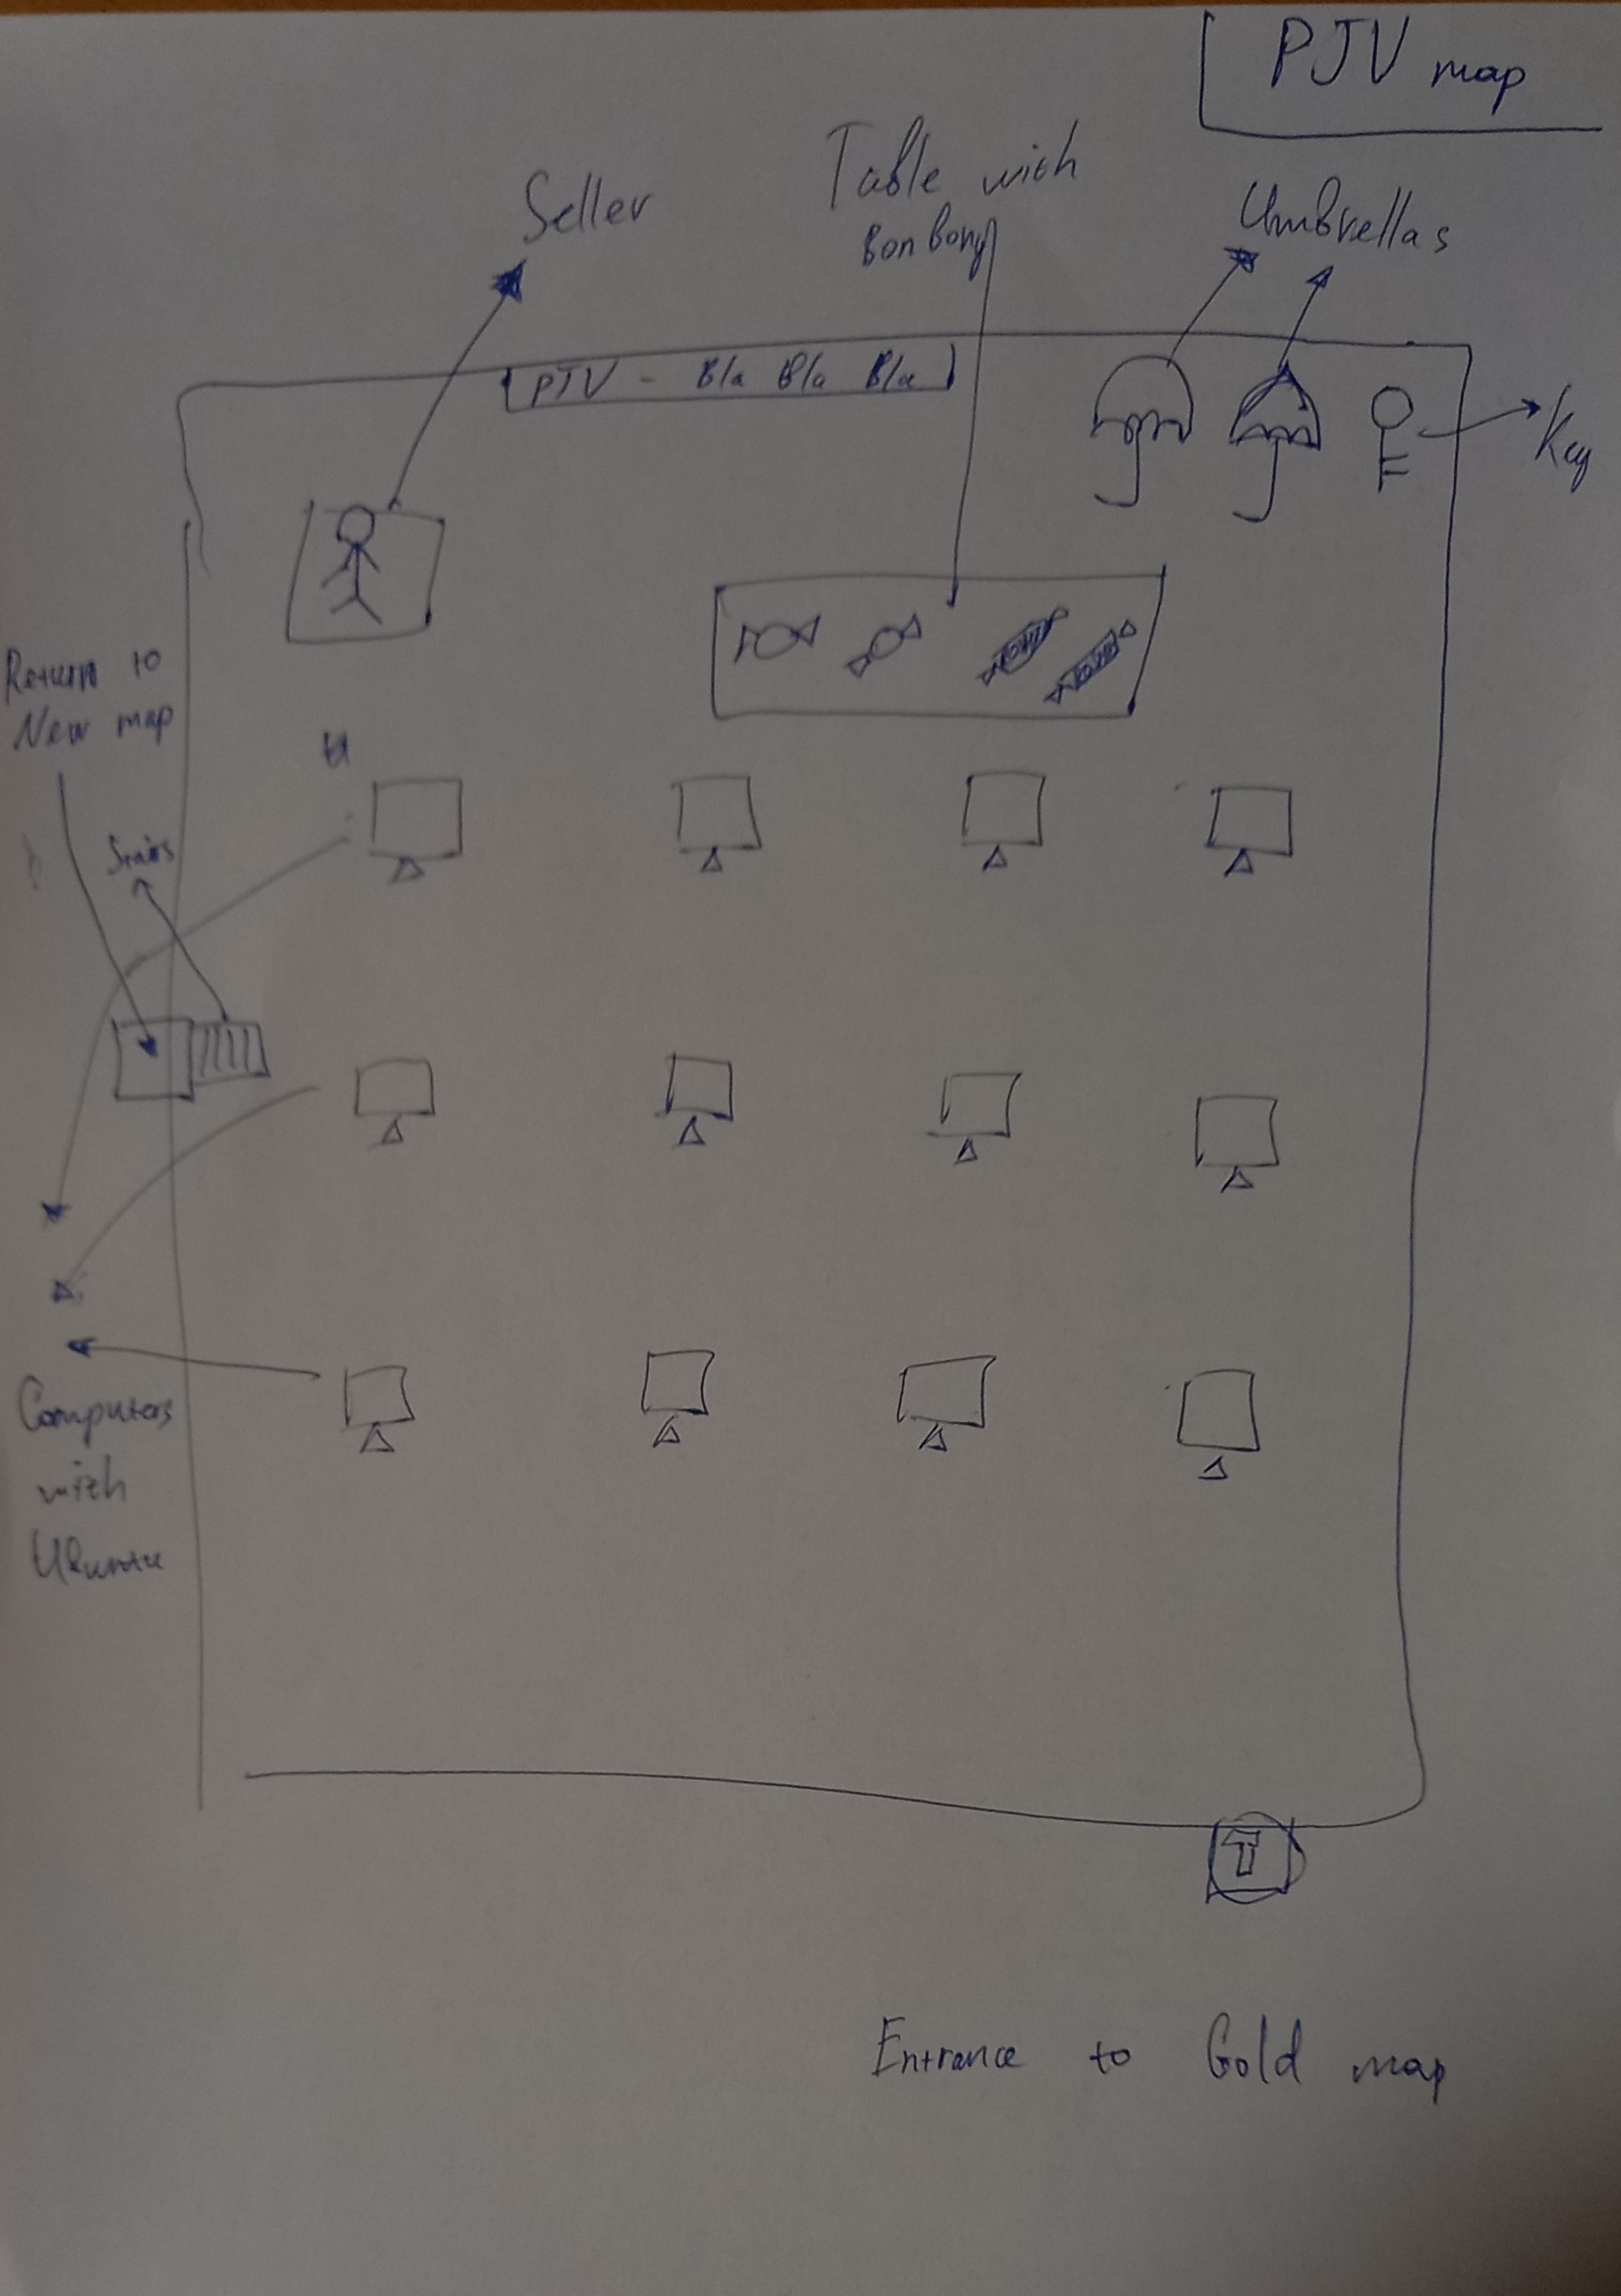 PJV map
Seller
Table with
Bonbony
Umbrellas
PJV - Bla Bla Bla
Key
Return to
New map
Stairs
Computers
with
Ubuntu
T
Entrance to Gold map